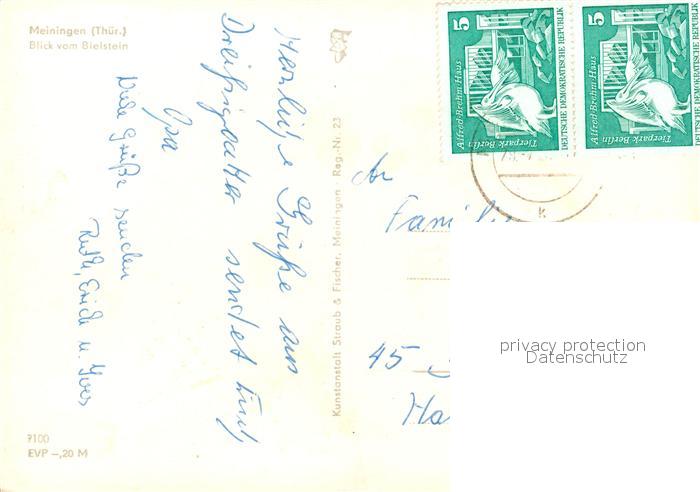 Meiningen (Thür.)
Blick vom Bielstein
Herzliche Grüße aus
Dreißigacker sendet Euch
Opa
Viele Grüße senden
Ruth, Erich u. Yves
Kunstanstalt Straub & Fischer, Meiningen · Reg.-Nr. 23
5
Alfred-Brehm-Haus
Tierpark Berlin
DEUTSCHE DEMOKRATISCHE REPUBLIK
5
Alfred-Brehm-Haus
Tierpark Berlin
DEUTSCHE DEMOKRATISCHE REPUBLIK
k
An
Familie
45
Ha
privacy protection
Datenschutz
7100
EVP -,20 M